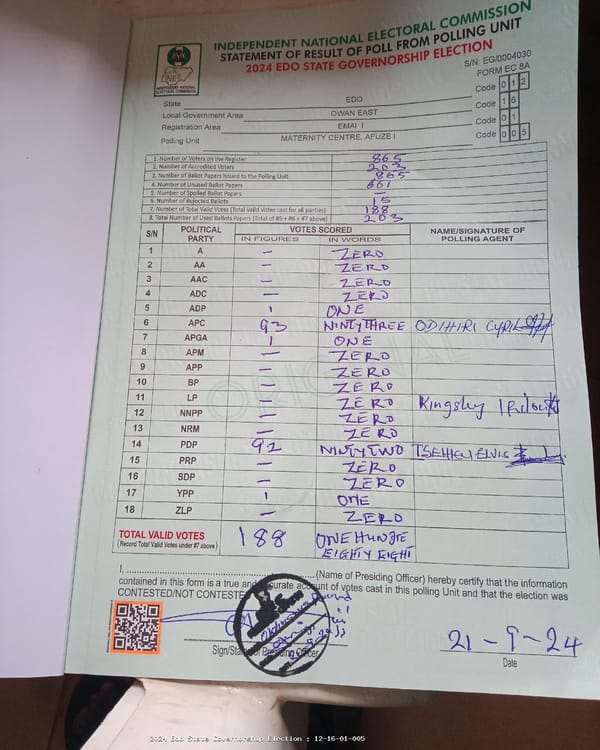 INDEPENDENT NATIONAL ELECTORAL COMMISSION
STATEMENT OF RESULT OF POLL FROM POLLING UNIT
2024 EDO STATE GOVERNORSHIP ELECTION
S/N: EG/0004030
FORM EC 8A
INEC
INDEPENDENT NATIONAL ELECTORAL COMMISSION
State EDO Code 0 1 2
Local Government Area OWAN EAST Code 1 6
Registration Area EMAI I Code 0 1
Polling Unit MATERNITY CENTRE, AFUZE I Code 0 0 5
1. Number of Voters on the Register 865
2. Number of Accredited Voters 203
3. Number of Ballot Papers Issued to the Polling Unit 865
4. Number of Unused Ballot Papers 661
5. Number of Spoiled Ballot Papers —
6. Number of Rejected Ballots 15
7. Number of Total Valid Votes (Total Valid Votes cast for all parties) 188
8. Total Number of Used Ballots Papers (Total of #5 + #6 + #7 above) 203
S/N POLITICAL PARTY VOTES SCORED NAME/SIGNATURE OF POLLING AGENT
IN FIGURES IN WORDS
1 A — ZERO
2 AA — ZERO
3 AAC — ZERO
4 ADC — ZERO
5 ADP 1 ONE
6 APC 93 NINTYTHREE ODIHIRI CYPIL
7 APGA 1 ONE
8 APM — ZERO
9 APP — ZERO
10 BP — ZERO
11 LP — ZERO Kingsley
12 NNPP — ZERO
13 NRM — ZERO
14 PDP 92 NINTYTWO ELVIS
15 PRP — ZERO
16 SDP — ZERO
17 YPP 1 ONE
18 ZLP — ZERO
TOTAL VALID VOTES 188 ONE HUNDRE
(Record Total Valid Votes under #7 above) EIGHTY EIGHT
I, (Name of Presiding Officer) hereby certify that the information
contained in this form is a true and accurate account of votes cast in this polling Unit and that the election was
CONTESTED/NOT CONTESTED
Sign/Stamp of Presiding Officer
21-9-24
Date
2024 Edo State Governorship Election : 12-16-01-005